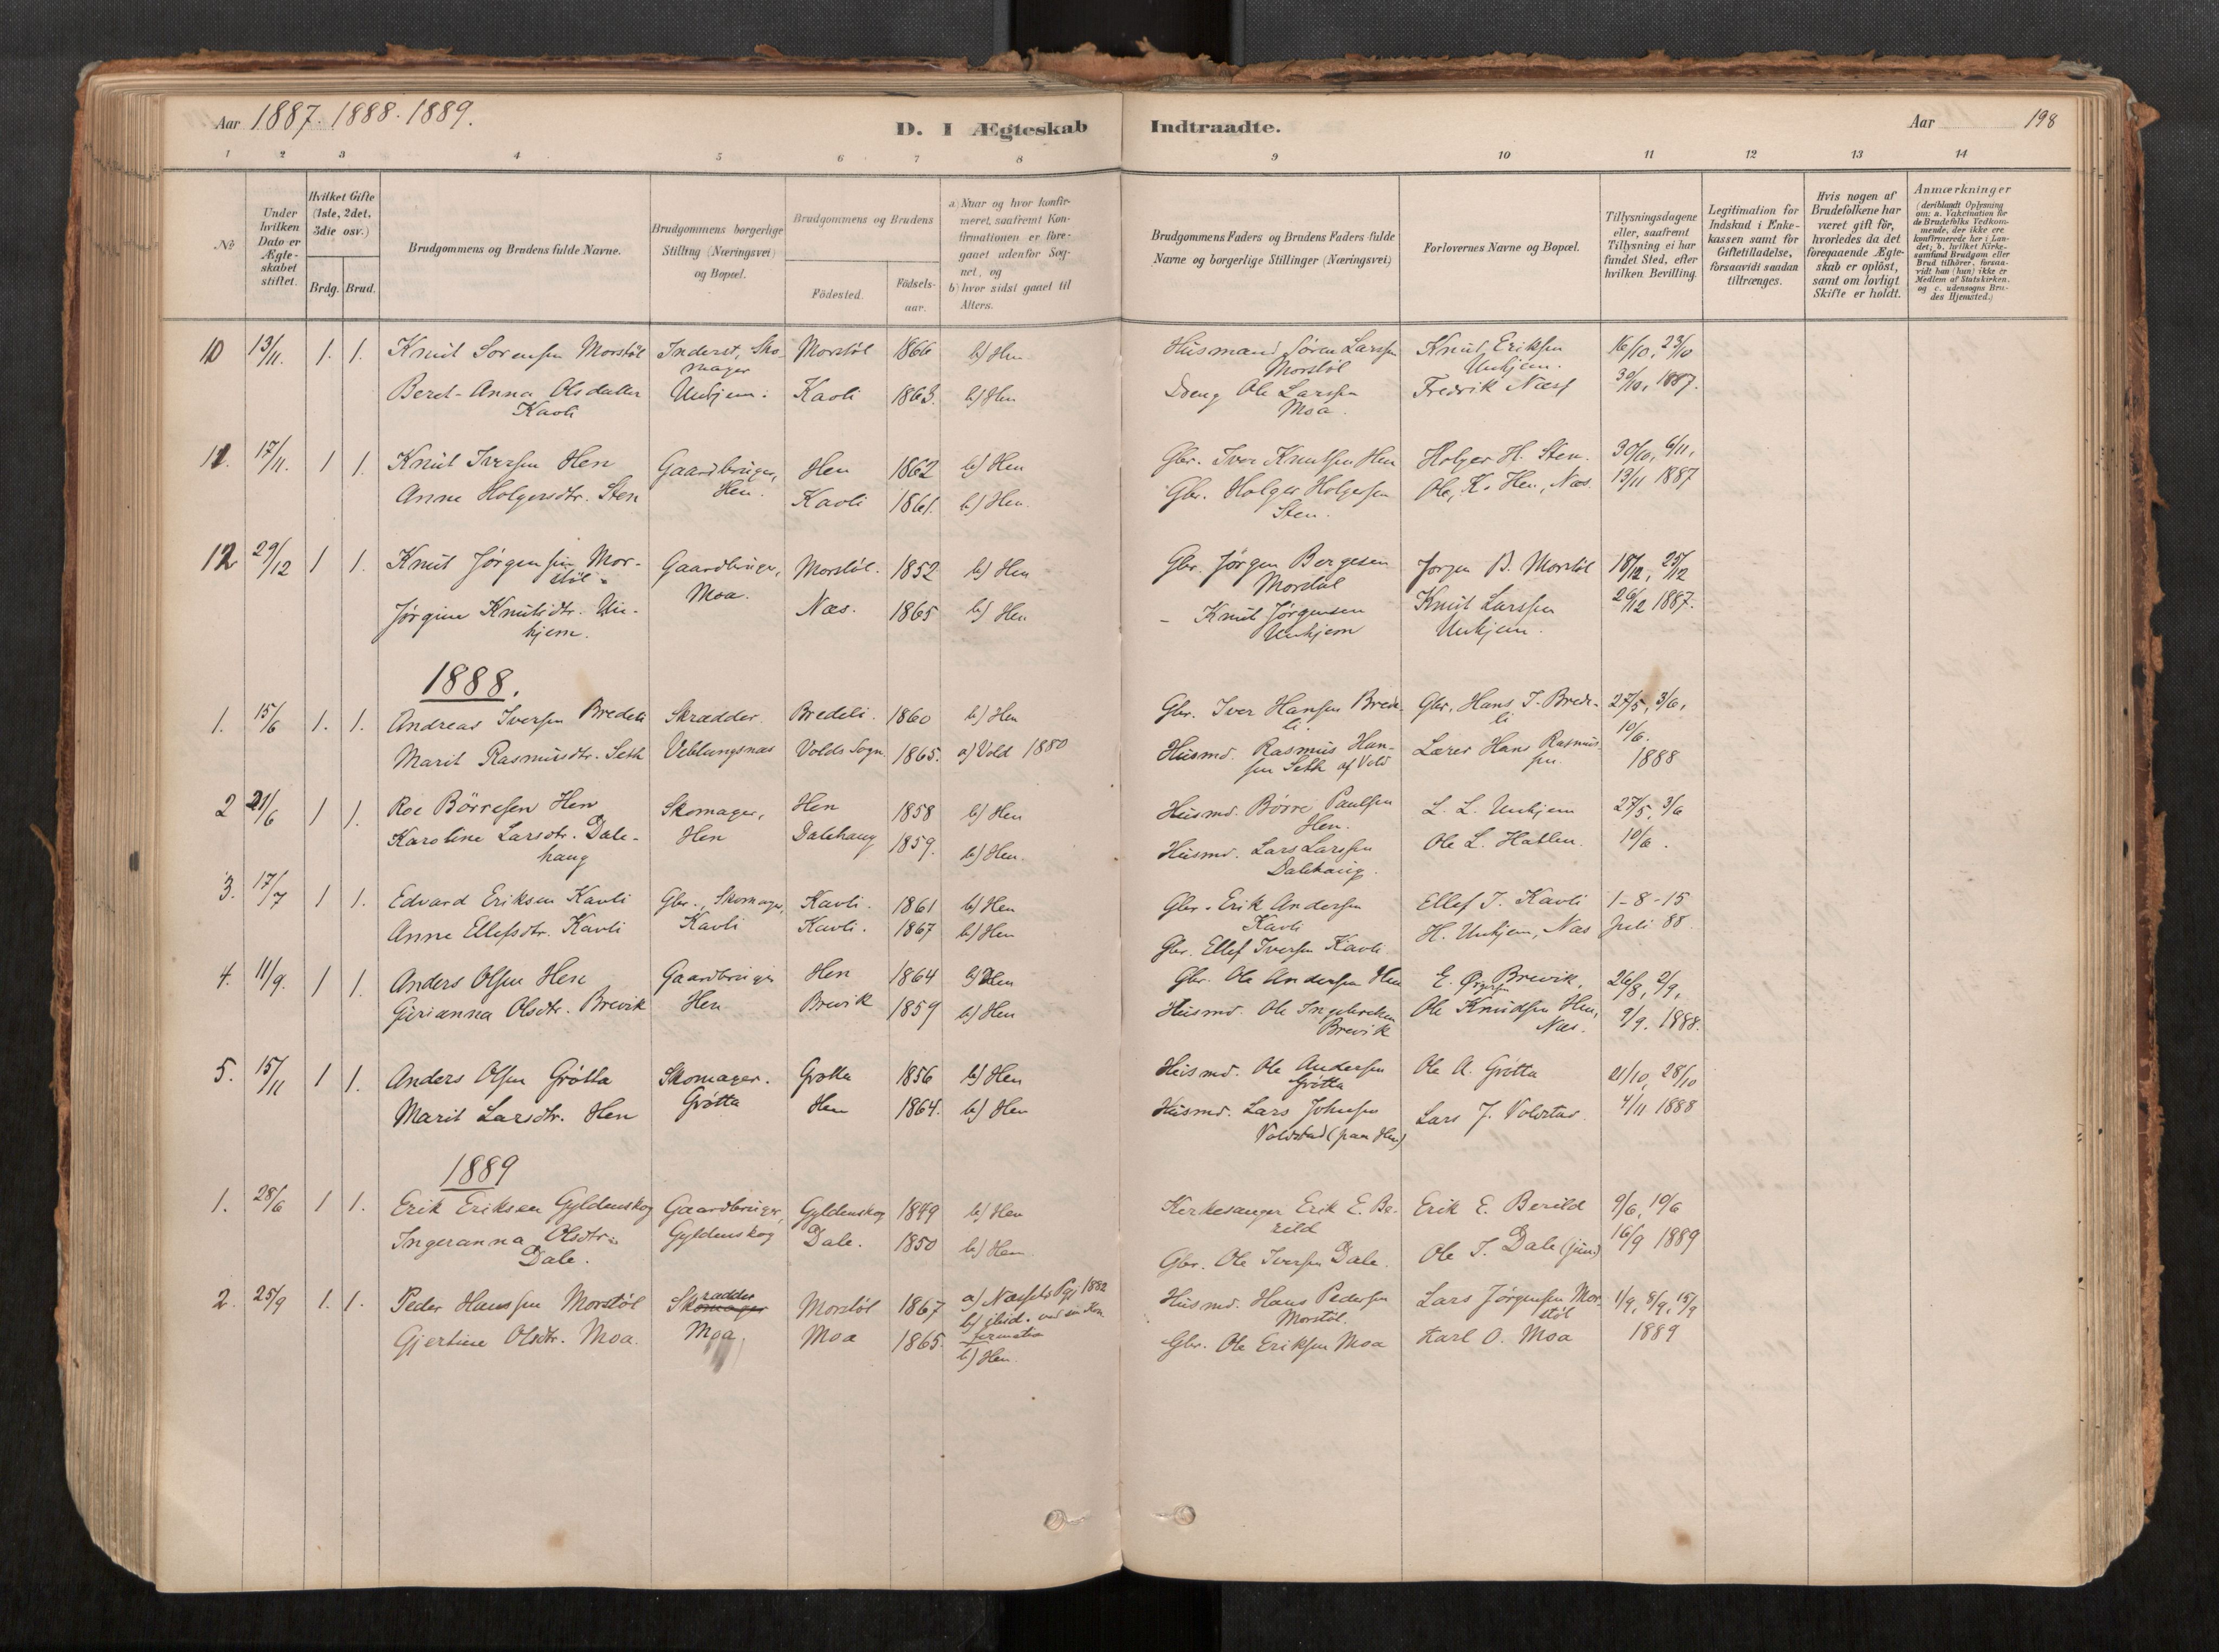 Aar 1887. 1888. 1889.
D. I Ægteskab Indtraadte.
Aar 198
1 2 3 4 5 6 7 8 9 10 11 12 13 14
No
Under hvilken Dato er Ægteskabet stiftet.
Hvilket Gifte (1ste, 2det, 3die osv.)
Brdg. Brud.
Brudgommens og Brudens fulde Navne.
Brudgommens borgerlige Stilling (Næringsvei) og Bopæl.
Brudgommens og Brudens
Födested.
Födselsaar.
a) Naar og hvor konfirmeret, saafremt Konfirmationen er foregaaet udenfor Sognet, og
b) hvor sidst gaaet til Alters.
Brudgommens Faders og Brudens Faders fulde Navne og borgerlige Stillinger (Næringsvei)
Forlovernes Navne og Bopæl.
Tillysningsdagene eller, saafremt Tillysning ei har fundet Sted, efter hvilken Bevilling.
Legitimation for Indskud i Enkekassen samt for Giftetilladelse, forsaavidt saadan tiltrænges.
Hvis nogen af Brudefolkene har været gift för, hvorledes da det foregaaende Ægteskab er oplöst, samt om lovligt Skifte er holdt.
Anmærkninger (deriblandt Oplysning om: a. Vakcination for de Brudefolks Vedkommende, der ikke ere konfirmerede her i Landet; b. hvilket Kirkesamfund Brudgom eller Brud tilhörer, forsaavidt han (hun) ikke er Medlem af Statskirken. og c. udensogns Brudes Hjemsted.)
10 13/11. 1. 1. Knut Sörensen Morstöl Inderst, Sko- Morstöl 1866 b) Hen Husmand Sören Larssen Knut Eriksen 16/10, 23/10
mager Morstöl Unhjem.
Beret-Anna Olsdatter Unhjem. Kavli 1863. b) Hen Dreng Ole Larssen Fredrik Næss 30/10, 1887.
Kavli Moa.
11. 17/11. 1 1. Knut Iversen Hen Gaardbruger, Hen 1862 b) Hen Gbr. Iver Knutsen Hen Holger H. Sten. 30/10, 6/11,
Anne Holgersdtr. Sten Hen. Kavli 1861. b) Hen. Gbr. Holger Holgersen Ole K. Hen, Næs. 13/11 1887
Sten.
12 29/12 1 1. Knut Jörgensen Mor- Gaardbruger, Morstöl. 1852 b) Hen Gbr. Jörgen Bergesen Jörgen B. Morstöl 18/12, 25/12
stöl Moa. Morstöl
Jörgine Knutsdtr. Un- Næs. 1865 b) Hen - Knut Jörgensen Knut Larssen 26/12 1887.
hjem. Unhjem Unhjem.
1888.
1. 15/6 1. 1. Andreas Iversen Bredeli Skrædder. Bredeli. 1860 b) Hen Gbr. Iver Hansen Brede- Gbr. Hans I. Brede- 27/5, 3/6,
li. li 10/6.
Marit Rasmusdtr. Seth Veblungsnæs Volds Sogn. 1865. a) Vold 1880 Husmd. Rasmus Han- Lærer Hans Rasmus- 1888
sen Seth af Vold sen.
2 21/6 1 1. Roe Börresen Hen Skomager, Hen 1858 b) Hen Husmd. Börre Paulsen L. L. Unhjem 27/5, 3/6
Hen.
Karoline Larsdtr. Dale- Hen Dalehaug 1859. b) Hen. Husmd. Lars Larssen Ole L. Hatlen. 10/6.
haug Dalehaug.
3. 17/7 1 1. Edvard Eriksen Kavli Gbr., Skomager, Kavli. 1861 b) Hen Gbr. Erik Andersen Ellef I. Kavli 1-8-15
Kavli
Anne Ellefsdtr. Kavli Kavli Kavli. 1867 b) Hen Gbr. Ellef Iversen Kavli H. Unhjem, Næs Juli 88
4. 11/9. 1 1. Anders Olsen Hen Gaardbruger Hen 1864 b) Hen Gbr. Ole Andersen Hen E. Brevik. 26/8, 2/9,
Gurianna Olsdtr. Brevik Hen Brevik 1859 b) Hen Husmd. Ole Ole Knudsen Hen, 9/9. 1888.
Brevik Næs.
5. 15/11 1 1. Anders Olsen Grötta Skomager. Grötta 1856 b) Hen Husmd. Ole Andersen Ole A. Grötta 21/10, 28/10
Grötta
Marit Larsdtr. Hen Grötta Hen 1864. b) Hen Husmd. Lars Johnsen Lars J. Voldstad 4/11 1888
Voldstad (paa Hen)
1889
1. 28/6 1 1. Erik Eriksen Gyldenskog Gaardbruger, Gyldenskog 1849 b) Hen Kirkesanger Erik E. Be- Erik E. Berild 9/6, 10/6
rild
Ingeranna Olsdtr. Gyldenskog Dale. 1850 b) Hen. Gbr. Ole Iversen Dale. Ole I. Dale (jun.) 16/9 1889
Dale.
2. 25/9 1. 1. Peder Hanssen Morstöl Skomager rædder Morstöl 1867 a) Næssets Pgj 1882 Husmd. Hans Pedersen Lars Jörgensen Mor- 1/9, 8/9, 15/9
b) ibid. ved sin Kon- Morstöl. stöl
firmation
Gjertine Olsdtr. Moa. Moa Moa 1865. b) Hen. Gbr. Ole Eriksen Moa Karl O. Moa 1889